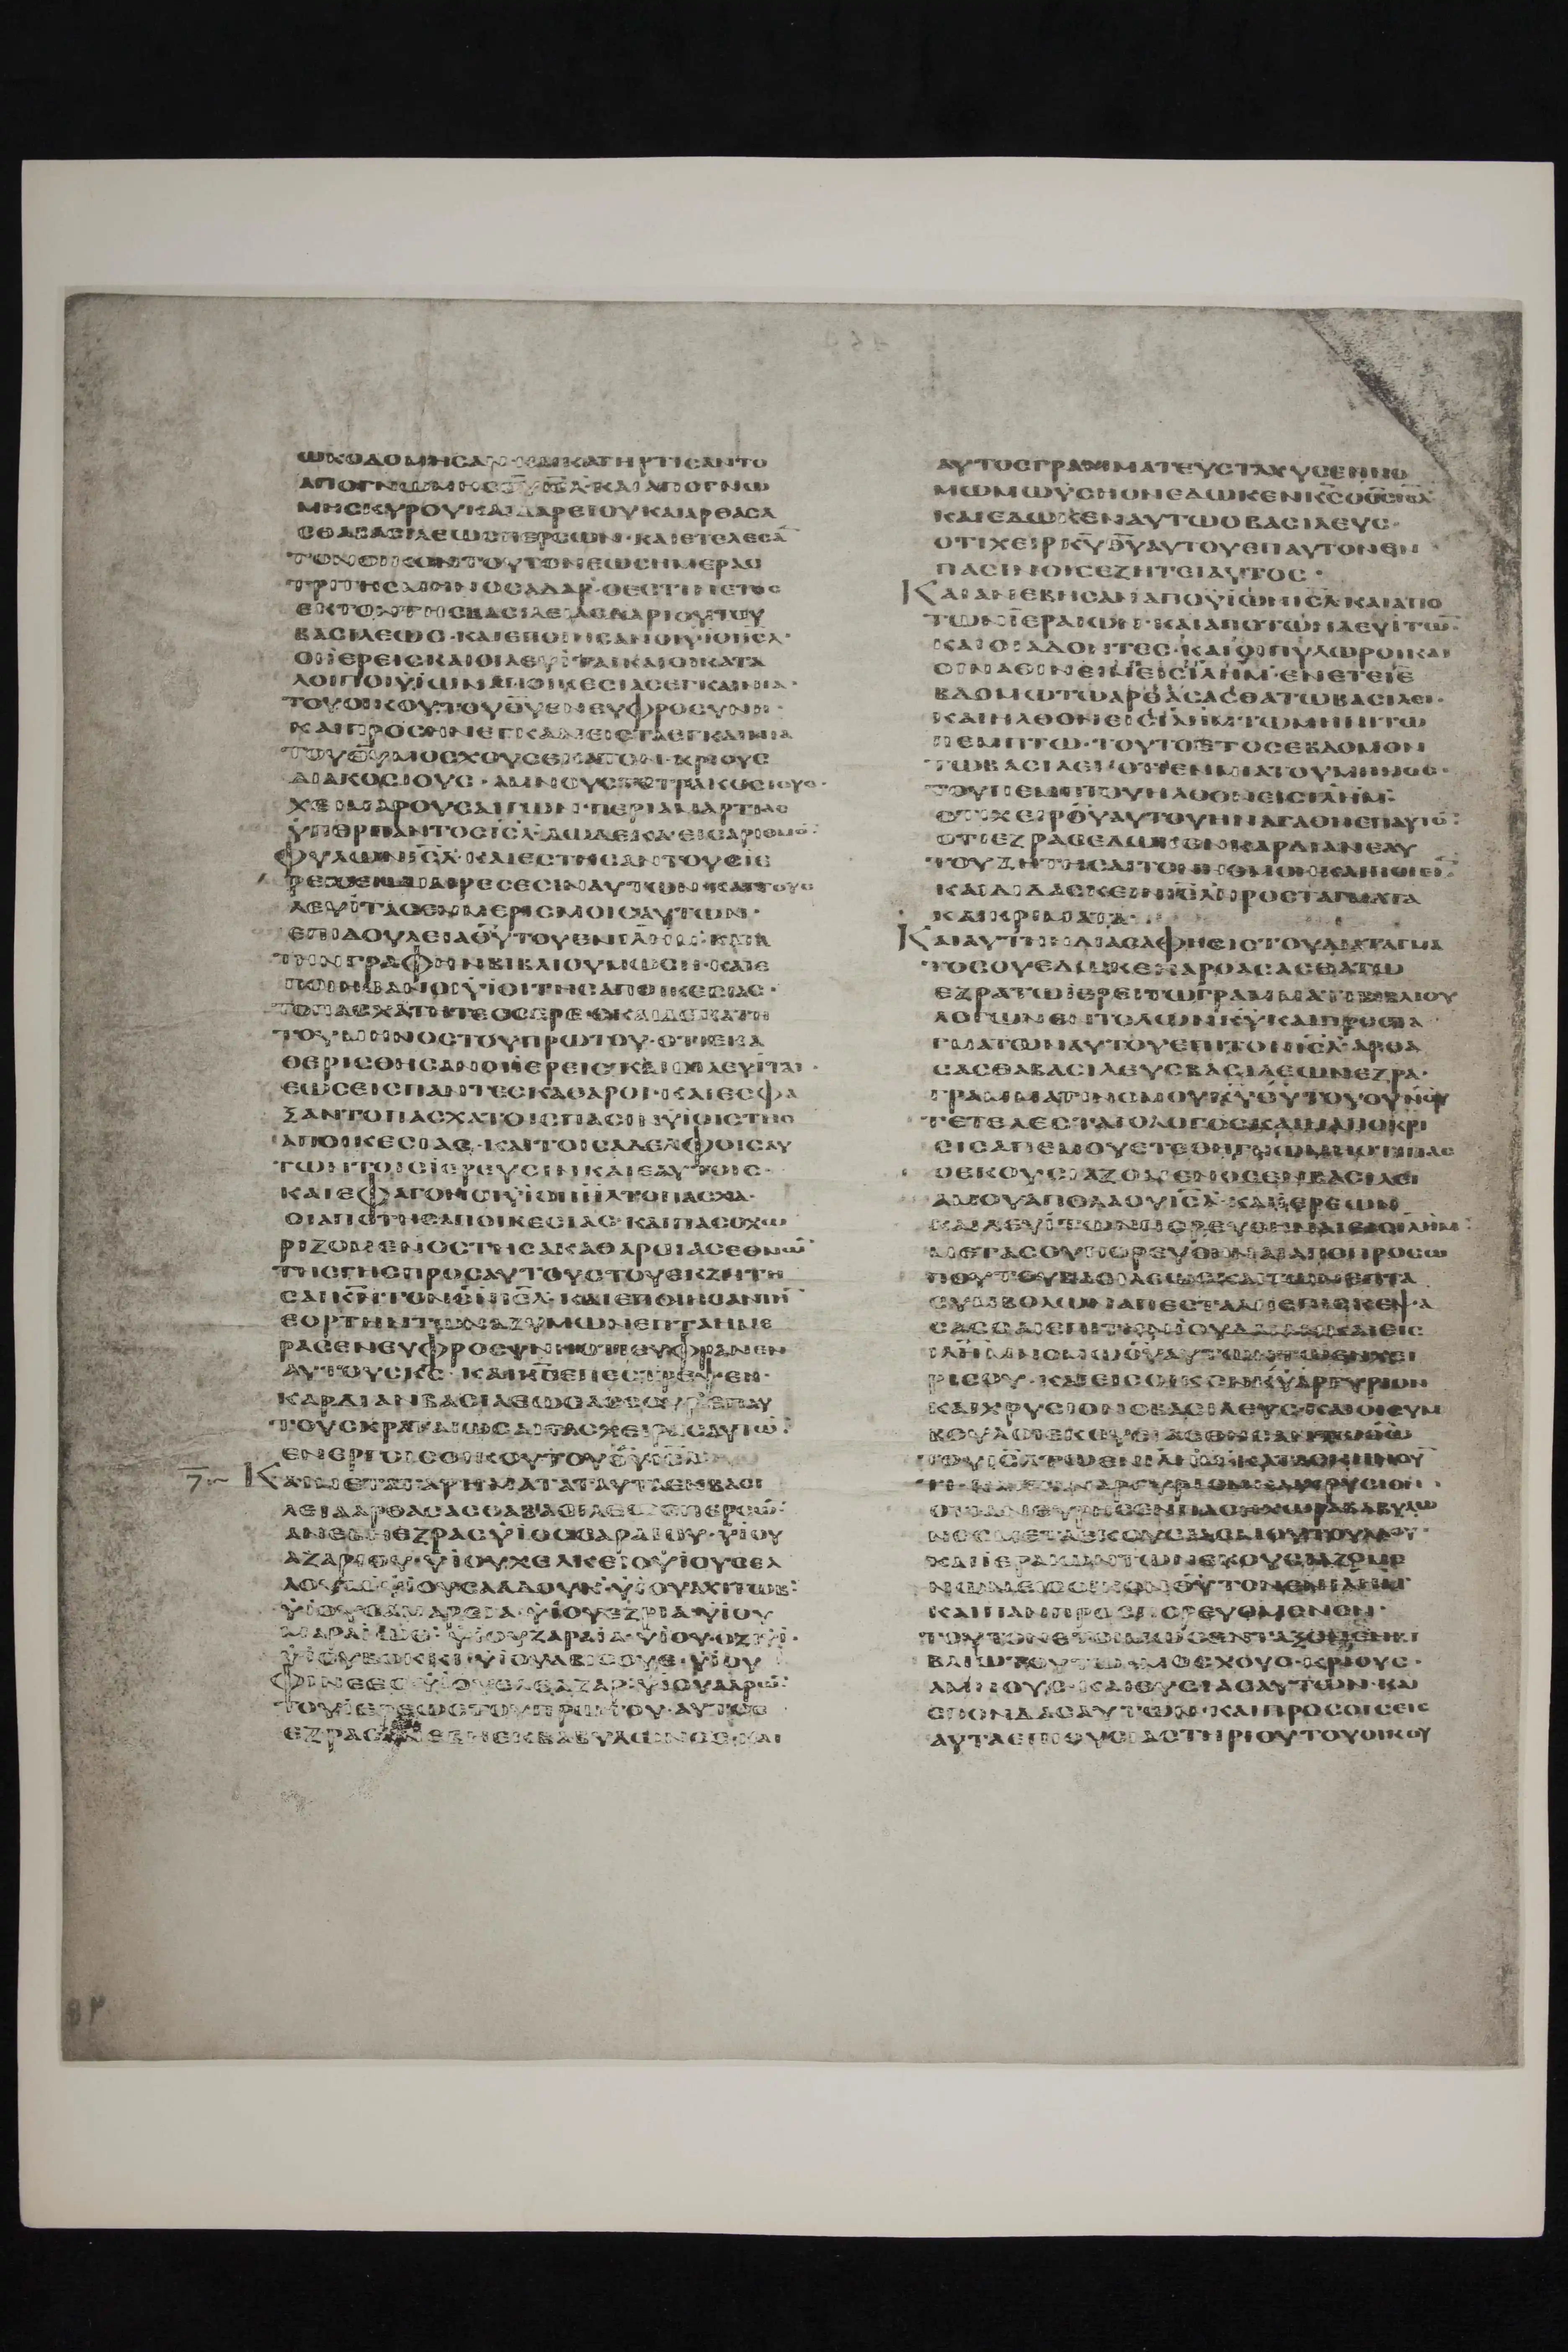 ΩΚΟΔΟΜΗΣΑΝ·ΚΑΙΚΑΤΗΡΤΙΣΑΝΤΟ
ΑΠΟΓΝΩΜΗΣΘ̅Υ̅Ι̅Σ̅Λ̅·ΚΑΙΑΠΟΓΝΩ
ΜΗΣΚΥΡΟΥΚΑΙΔΑΡΕΙΟΥΚΑΙΑΡΘΑΣΑ
ΣΘΑΒΑΣΙΛΕΩΣΠΕΡΣΩΝ·ΚΑΙΕΤΕΛΕΣΑ̅
ΤΟΝΟΙΚΟΝΤΟΥΤΟΝΕΩΣΗΜΕΡΑΣ
ΤΡΙΤΗΣΜΗΝΟΣΑΔΑΡ·ΟΕΣΤΙΝΕΤΟΣ
ΕΚΤΟΝΤΗΣΒΑΣΙΛΕΙΑΣΔΑΡΙΟΥΤΟΥ
ΒΑΣΙΛΕΩΣ·ΚΑΙΕΠΟΙΗΣΑΝΟΙΥΙΟΙΙ̅Σ̅Λ̅·
ΟΙΙΕΡΕΙΣΚΑΙΟΙΛΕΥΙΤΑΙΚΑΙΟΙΚΑΤΑ
ΛΟΙΠΟΙΥΙΩΝΑΠΟΙΚΕΣΙΑΣΕΓΚΑΙΝΙΑ·
ΤΟΥΟΙΚΟΥΤΟΥΘ̅Υ̅ΕΝΕΥΦΡΟΣΥΝΗ·
ΚΑΙΠΡΟΣΗΝΕΓΚΑΝΕΙΣΤΑΕΓΚΑΙΝΙΑ
ΤΟΥΘ̅Υ̅ΜΟΣΧΟΥΣΕΚΑΤΟΝ·ΚΡΙΟΥΣ
ΔΙΑΚΟΣΙΟΥΣ·ΑΜΝΟΥΣΤΕΤΡΑΚΟΣΙΟΥΣ·
ΧΕΙΜΑΡΟΥΣΑΙΓΩΝ·ΠΕΡΙΑΜΑΡΤΙΑΣ
ΥΠΕΡΠΑΝΤΟΣΙ̅Σ̅Λ̅·ΔΩΔΕΚΑ·ΕΙΣΑΡΙΘΜΟ̅·
ΦΥΛΩΝΙ̅Σ̅Λ̅·ΚΑΙΕΣΤΗΣΑΝΤΟΥΣΙΕ
ΡΕΙΣΕΝΔΙΑΙΡΕΣΕΣΙΝΑΥΤΩΝ·ΚΑΙΤΟΥΣ
ΛΕΥΙΤΑΣΕΝΜΕΡΙΣΜΟΙΣΑΥΤΩΝ·
ΕΠΙΔΟΥΛΕΙΑΘ̅Υ̅ΤΟΥΕΝΙ̅Λ̅Η̅Μ̅·ΚΑΤΑ
ΤΗΝΓΡΑΦΗΝΒΙΒΛΙΟΥΜΩΣΗ·ΚΑΙΕ
ΠΟΙΗΣΑΝΟΙΥΙΟΙΤΗΣΑΠΟΙΚΕΣΙΑΣ·
ΤΟΠΑΣΧΑΤΗΤΕΣΣΕΡΕΣΚΑΙΔΕΚΑΤΗ
ΤΟΥΜΗΝΟΣΤΟΥΠΡΩΤΟΥ·ΟΤΙΕΚΑ
ΘΕΡΙΣΘΗΣΑΝΟΙΙΕΡΕΙΣΚΑΙΟΙΛΕΥΙΤΑΙ·
ΕΩΣΕΙΣΠΑΝΤΕΣΚΑΘΑΡΟΙ·ΚΑΙΕΣΦΑ
ΞΑΝΤΟΠΑΣΧΑΤΟΙΣΠΑΣΙΝΥΙΟΙΣΤΗΣ
ΑΠΟΙΚΕΣΙΑΣ·ΚΑΙΤΟΙΣΑΔΕΛΦΟΙΣΑΥ
ΤΩΝΤΟΙΣΙΕΡΕΥΣΙΝΚΑΙΕΑΥΤΟΙΣ·
ΚΑΙΕΦΑΓΟΝΟΙΥΙΟΙΙ̅Σ̅Λ̅ΤΟΠΑΣΧΑ·
ΟΙΑΠΟΤΗΣΑΠΟΙΚΕΣΙΑΣ·ΚΑΙΠΑΣΟΧΩ
ΡΙΖΟΜΕΝΟΣΤΗΣΑΚΑΘΑΡΣΙΑΣΕΘΝΩ̅
ΤΗΣΓΗΣΠΡΟΣΑΥΤΟΥΣΤΟΥΕΚΖΗΤΗ
ΣΑΙΚ̅Ν̅ΤΟΝΘ̅Ν̅Ι̅Σ̅Λ̅·ΚΑΙΕΠΟΙΗΣΑΝΤΗ̅
ΕΟΡΤΗΝΤΩΝΑΖΥΜΩΝΕΠΤΑΗΜΕ
ΡΑΣΕΝΕΥΦΡΟΣΥΝΗΟΤΙΕΥΦΡΑΝΕΝ
ΑΥΤΟΥΣΚ̅Σ̅·ΚΑΙΕΠΕΣΤΡΕΨΕΝ·
ΚΑΡΔΙΑΝΒΑΣΙΛΕΩΣΑΣΣΟΥΡΕΠΑΥ
ΤΟΥΣΚΡΑΤΑΙΩΣΑΙΤΑΣΧΕΙΡΑΣΑΥΤΩ̅·
ΕΝΕΡΓΟΙΣΟΙΚΟΥΤΟΥΘ̅Υ̅Ι̅Σ̅Λ̅
ΚΑΙΜΕΤΑΤΑΡΗΜΑΤΑΤΑΥΤΑΕΝΒΑΣΙ
ΛΕΙΑΑΡΘΑΣΑΣΘΑΒΑΣΙΛΕΩΣΠΕΡΣΩ̅·
ΑΝΕΒΗΕΖΡΑΣΥΙΟΣΣΑΡΑΙΟΥ·ΥΙΟΥ
ΑΖΑΡΙΟΥ·ΥΙΟΥΧΕΛΚΕΙΟΥΙΟΥΣΕΛ
ΛΟΥΜ·ΥΙΟΥΣΑΔΔΟΥΚ·ΥΙΟΥΑΧΙΤΩΒ·
ΥΙΟΥΣΑΜΑΡΕΙΑ·ΥΙΟΥΕΖΡΙΑ·ΥΙΟΥ
ΜΑΡΑΙΩΘ·ΥΙΟΥΖΑΡΑΙΑ·ΥΙΟΥ·ΟΖΙΥΙ·
ΥΙΟΥΒΟΚΚΙ·ΥΙΟΥΑΒΙΣΟΥΕ·ΥΙΟΥ
ΦΙΝΕΕΣ·ΥΙΟΥΕΛΕΑΖΑΡ·ΥΙΟΥΑΑΡΩ̅·
ΤΟΥΙΕΡΕΩΣΤΟΥΠΡΩΤΟΥ·ΑΥΤΟΣ
ΕΖΡΑΣΑΝΕΒΗΕΚΒΑΒΥΛΩΝΟΣ·ΚΑΙ
ΑΥΤΟΣΓΡΑΜΜΑΤΕΥΣΤΑΧΥΣΕΝΝΟ
ΜΩΜΩΥΣΗΟΝΕΔΩΚΕΝΚ̅Σ̅Ο̅Θ̅Σ̅Ι̅Σ̅Λ̅
ΚΑΙΕΔΩΚΕΝΑΥΤΩΟΒΑΣΙΛΕΥΣ·
ΟΤΙΧΕΙΡΚ̅Υ̅Θ̅Υ̅ΑΥΤΟΥΕΠΑΥΤΟΝΕΝ
ΠΑΣΙΝΟΙΣΕΖΗΤΕΙΑΥΤΟΣ·
ΚΑΙΑΝΕΒΗΣΑΝΑΠΟΥΙΩΝΙ̅Σ̅Λ̅ΚΑΙΑΠΟ
ΤΩΝΙΕΡΑΙΩΝ·ΚΑΙΑΠΟΤΩΝΛΕΥΙΤΩ̅·
ΚΑΙΟΙΑΔΟΝΤΕΣ·ΚΑΙΟΙΠΥΛΩΡΟΙΚΑΙ
ΟΙΝΑΘΙΝΕΙΜΕΙΣΙ̅Λ̅Η̅Μ̅·ΕΝΕΤΕΙΕ
ΒΔΟΜΩΤΩΑΡΘΑΣΑΣΘΑΤΩΒΑΣΙΛΕΙ·
ΚΑΙΗΛΘΟΝΕΙΣΙ̅Λ̅Η̅Μ̅ΤΩΜΗΝΙΤΩ
ΠΕΜΠΤΩ·ΤΟΥΤΟΕΤΟΣΕΒΔΟΜΟΝ
ΤΩΒΑΣΙΛΕΙ·ΟΤΙΕΝΜΙΑΤΟΥΜΗΝΟΣ·
ΤΟΥΠΕΜΠΤΟΥΗΛΘΟΝΕΙΣΙ̅Λ̅Η̅Μ̅·
ΟΤΙΧΕΙΡΘ̅Υ̅ΑΥΤΟΥΗΝΑΓΑΘΗΕΠΑΥΤΟ̅·
ΟΤΙΕΖΡΑΣΕΔΩΚΕΝΚΑΡΔΙΑΝΕΑΥ
ΤΟΥΖΗΤΗΣΑΙΤΟΝΝΟΜΟΝΚΑΙΠΟΙΕΙ̅·
ΚΑΙΔΙΔΑΣΚΕΙΝΙ̅Σ̅Λ̅ΠΡΟΣΤΑΓΜΑΤΑ
ΚΑΙΚΡΙΜΑΤΑ·
ΚΑΙΑΥΤΗΗΔΙΑΣΑΦΗΣΙΣΤΟΥΔΙΑΤΑΓΜΑ
ΤΟΣΟΥΕΔΩΚΕΝΑΡΘΑΣΑΣΘΑΤΩ
ΕΖΡΑΤΩΙΕΡΕΙΤΩΓΡΑΜΜΑΤΕΙΒΙΒΛΙΟΥ
ΛΟΓΩΝΕΝΤΟΛΩΝΚ̅Υ̅ΚΑΙΠΡΟΣΤΑ
ΓΜΑΤΩΝΑΥΤΟΥΕΠΙΤΟΝΙ̅Σ̅Λ̅·ΑΡΘΑ
ΣΑΣΘΑΒΑΣΙΛΕΥΣΒΑΣΙΛΕΩΝΕΖΡΑ·
ΓΡΑΜΜΑΤΙΝΟΜΟΥΚ̅Υ̅Θ̅Υ̅ΤΟΥΟΥΝΟΥ
ΤΕΤΕΛΕΣΤΑΙΟΛΟΓΟΣΚΑΙΗΑΠΟΚΡΙ
ΣΙΣΑΠΕΜΟΥΕΤΕΘΗΓΝΩΜΗΟΤΙΠΑΣ
ΟΕΚΟΥΣΙΑΖΟΜΕΝΟΣΕΝΒΑΣΙΛΕΙ
ΑΜΟΥΑΠΟΛΑΟΥΙ̅Σ̅Λ̅·ΚΑΙΙΕΡΕΩΝ
ΚΑΙΛΕΥΙΤΩΝΠΟΡΕΥΘΗΝΑΙΕΙΣΙ̅Λ̅Η̅Μ̅·
ΜΕΤΑΣΟΥΠΟΡΕΥΘΗΝΑΙΑΠΟΠΡΟΣΩ
ΠΟΥΤΟΥΒΑΣΙΛΕΩΣΚΑΙΤΩΝΕΠΤΑ
ΣΥΜΒΟΛΩΝΑΠΕΣΤΑΛΗΕΠΙΣΚΕΨΑ
ΣΑΣΘΑΙΕΠΙΤΗΝΙΟΥΔΑΙΑΝΚΑΙΕΙΣ
Ι̅Λ̅Η̅Μ̅ΝΟΜΩΘ̅Υ̅ΑΥΤΩΝΤΩΕΝΧΕΙ
ΡΙΣΟΥ·ΚΑΙΕΙΣΟΙΚΟΝΚ̅Υ̅ΑΡΓΥΡΙΟΝ
ΚΑΙΧΡΥΣΙΟΝΟΒΑΣΙΛΕΥΣ·ΚΑΙΟΙΣΥΜ
ΒΟΥΛΟΙΕΚΟΥΣΙΑΣΘΗΣΑΝΤΩΘ̅Ω̅
ΤΟΥΙ̅Σ̅Λ̅
ΟΤΙΕΑΝΕΥΡΗΣΕΝΠΑΣΗΧΩΡΑΒΑΒΥΛΩ
ΝΟΣΜΕΤΑΕΚΟΥΣΙΑΣΜΟΥΤΟΥΛΑΟΥ·
ΚΑΙΙΕΡΑΙΩΝΤΩΝΕΚΟΥΣΙΑΖΟΜΕ
ΝΩΝΕΙΣΟΙΚΟΝΘ̅Υ̅ΤΟΝΕΝΙ̅Λ̅Η̅Μ̅
ΚΑΙΠΑΝΠΡΟΣΠΟΡΕΥΟΜΕΝΟΝ·
ΤΟΥΤΟΝΕΤΟΙΜΩΣΕΝΤΑΞΟΝΕΝΒΙ
ΒΛΙΩΤΟΥΤΩΜΟΣΧΟΥΣ·ΚΡΙΟΥΣ·
ΑΜΝΟΥΣ·ΚΑΙΘΥΣΙΑΣΑΥΤΩΝ·ΚΑΙ
ΣΠΟΝΔΑΣΑΥΤΩΝ·ΚΑΙΠΡΟΣΟΙΣΕΙΣ
ΑΥΤΑΕΠΙΘΥΣΙΑΣΤΗΡΙΟΥΤΟΥΟΙΚΟΥ